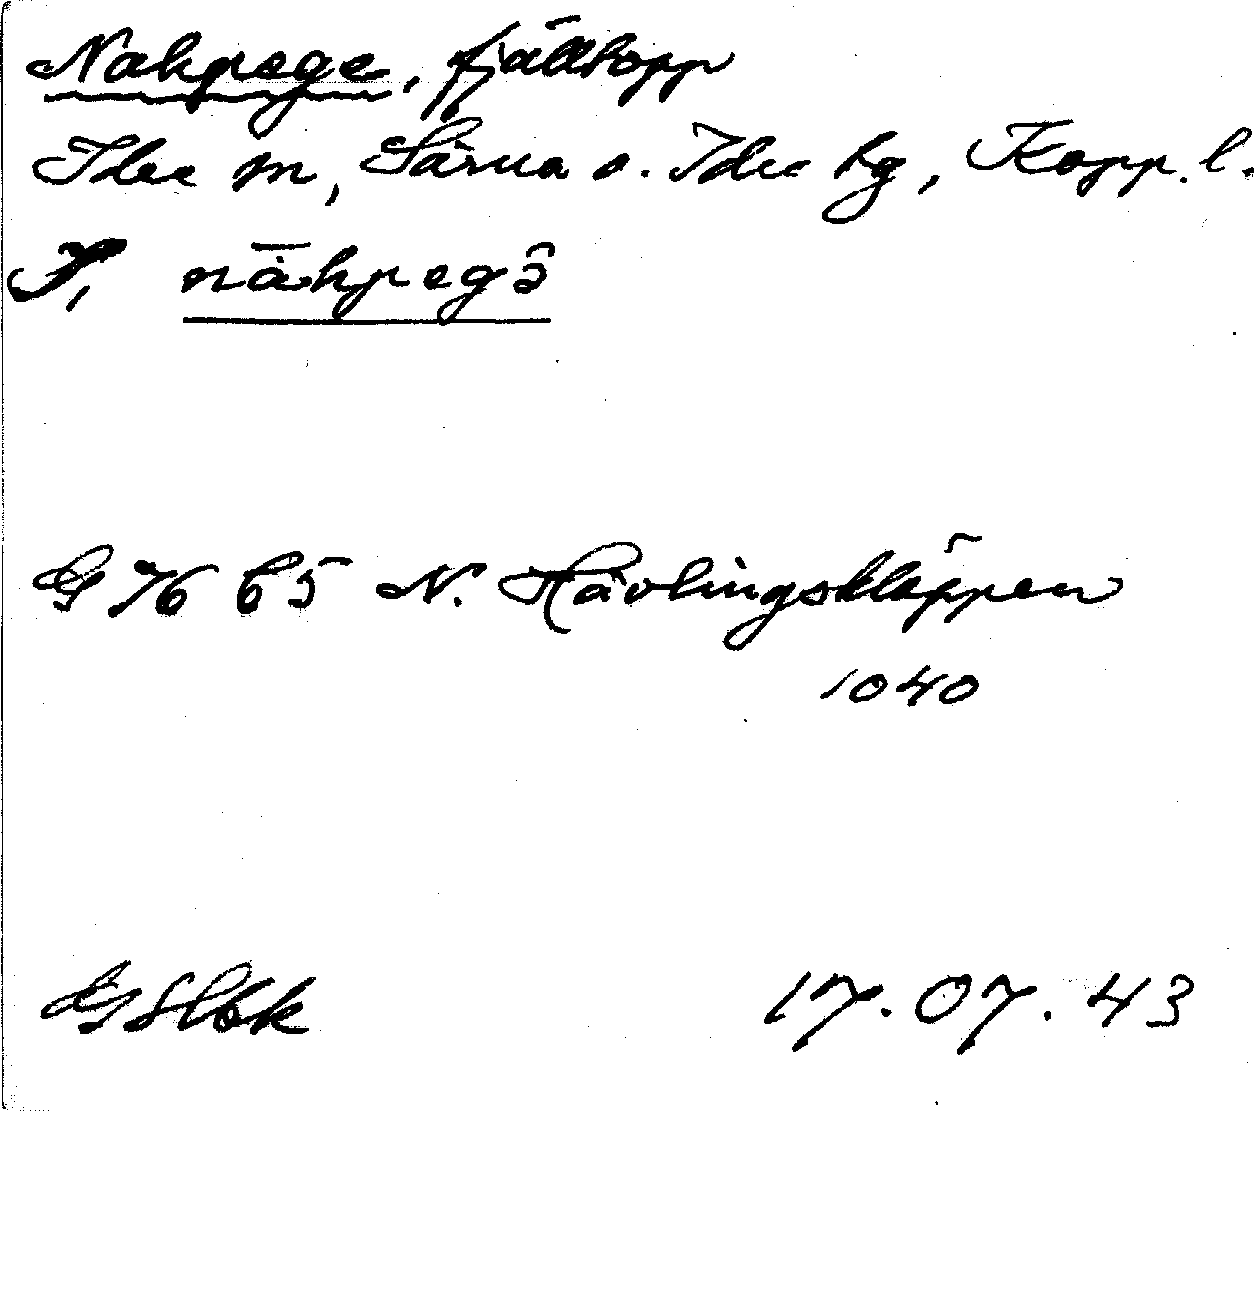 Nahpege, fjälltopp
Idre sn, Särna o. Idre tg, Kopp. l.
nāhpegə̑
G 76 65 N. Hävlingskläppen
1040
17.07.43